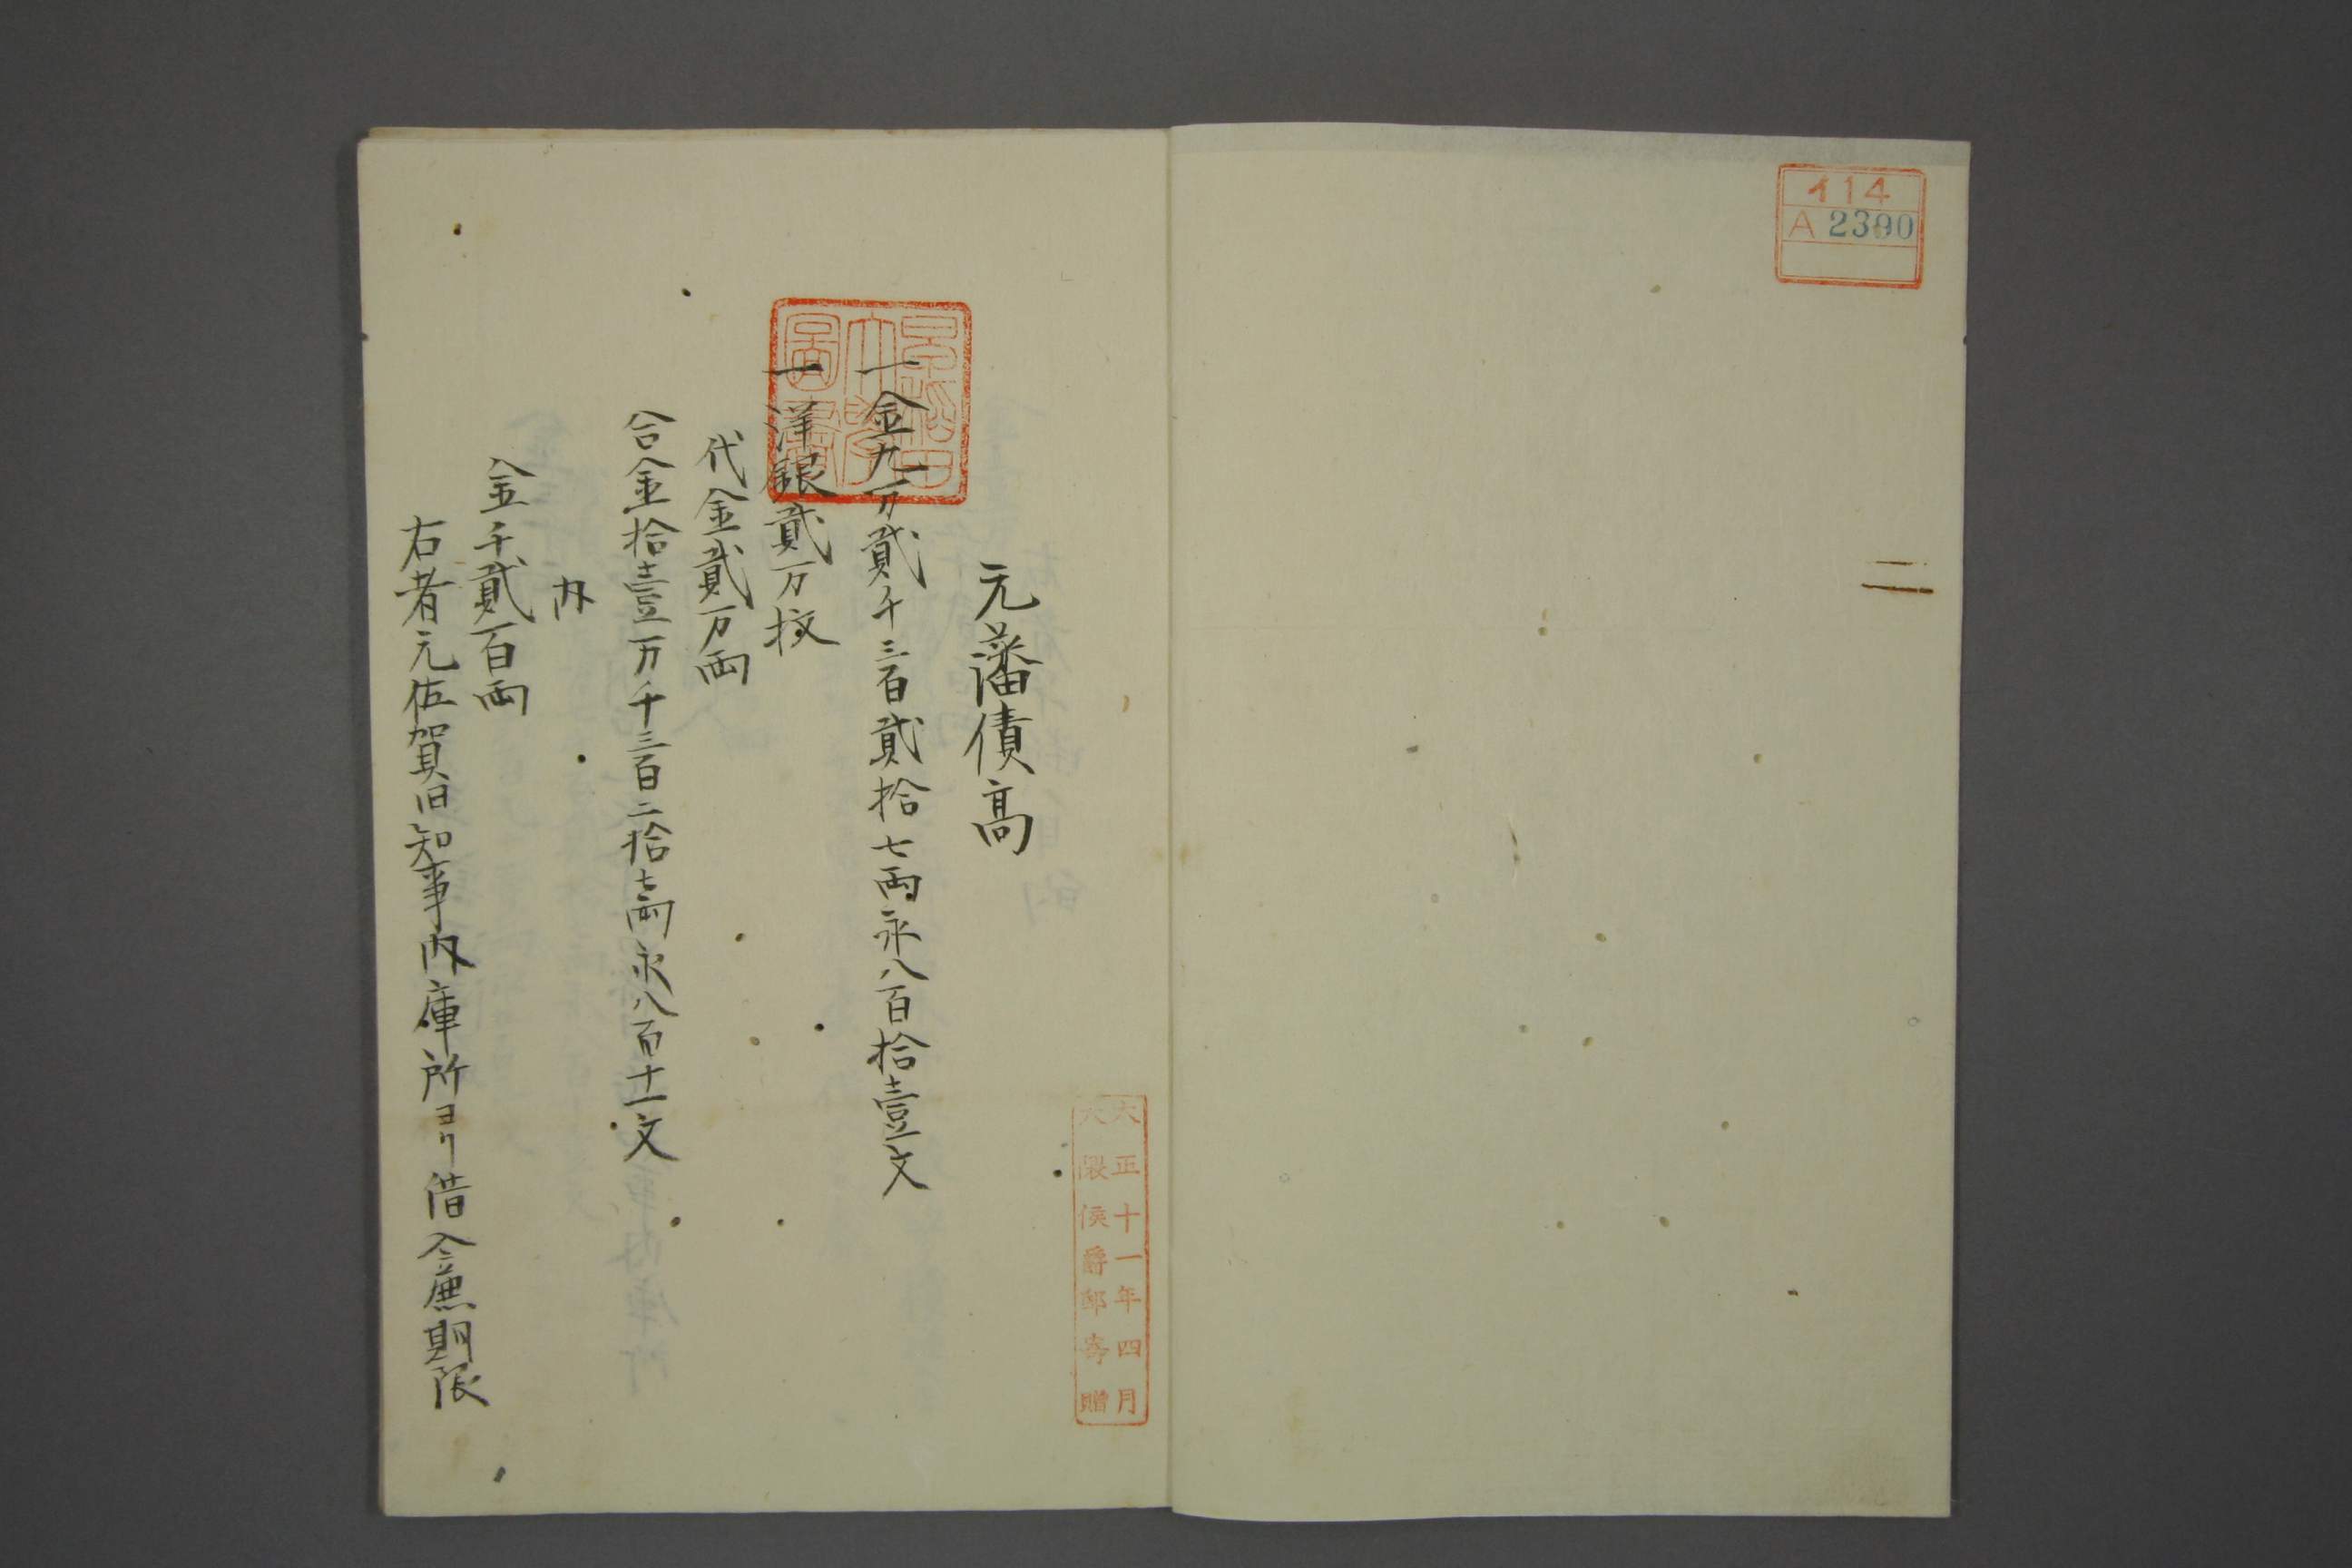 イ14
A 2390
大正十一年四月
大隈侯爵邸寄贈
早稲田
大學
圖書
元藩債高
一金九万貳千三百貳拾七両永八百拾壹文
一洋銀貳万枚
代金貳万両
合金拾壹万千三百二拾七両永八百十一文
内
金千貳百両
右者元佐賀旧知事内庫所ヨリ借金無期限